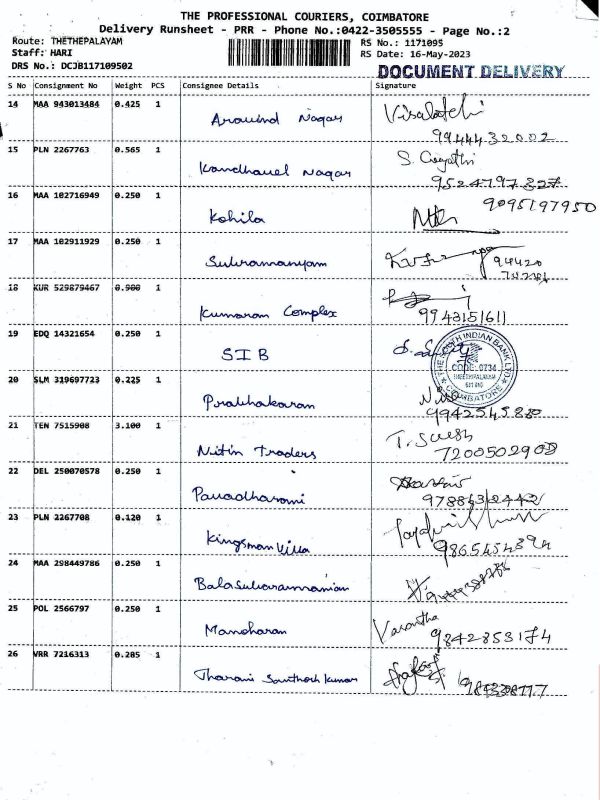 THE PROFESSIONAL COURIERS, COIMBATORE
Delivery Runsheet - PRR - Phone No.:0422-3505555 - Page No.:2
Route: THETHEPALAYAM
RS No.: 1171095
Staff: HARI
RS Date: 16-May-2023
DRS No.: DCJB117109502
DOCUMENT DELIVERY
S No Consignment No Weight PCS Consignee Details Signature
14 MAA 943013484 0.425 1 Aravind Nagar Visalatchi
9944432002
15 PLN 2267763 0.565 1 Kandhavel Nagar S. Gayathri
9524797327
16 MAA 102716949 0.250 1 Kohila 9095197950
17 MAA 102911929 0.250 1 Subramaniyam 94420
18 KUR 529879467 0.900 1 Kumaran Complex
9943151611
19 EDQ 14321654 0.250 1 SIB
THE SOUTH INDIAN BANK LTD.
CODE: 0734
THEETHIPALAYAM
641 010
COIMBATORE
20 SLM 319697723 0.225 1 Prabhakaran
21 TEN 7515908 3.100 1 Nitin Traders T. Suresh
22 DEL 250070578 0.250 1
9788632442
23 PLN 2267708 0.120 1 Kingsman Villa
24 MAA 298449786 0.250 1 Balasubaramaniam
25 POL 2566797 0.250 1 Manoharan Vasantha
9842853174
26 VRR 7216313 0.285 1 Tharani Santhosh Kumar